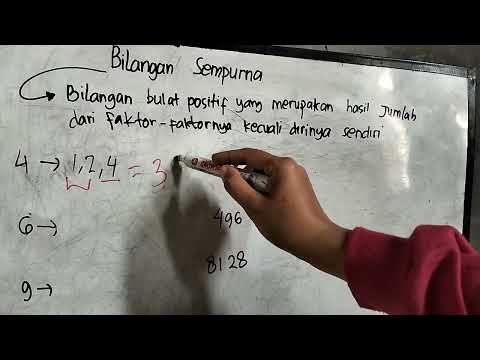 Bilangan Sempurna
Bilangan bulat positif yang merupakan hasil jumlah
dari faktor-faktornya kecuali dirinya sendiri
4 → 1, 2, 4 = 3
6 →
496
8128
9 →